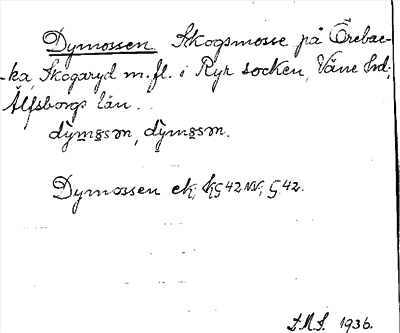 Dymossen. Skogsmosse på Örebac-
-ka, Skogaryd m.fl. i Ryr socken, Väne hd,
Älfsborgs län.
dỳmo̤sən, dy̆mo̤sən.
Dymossen ek, kg 42 NV; G 42.
1936.